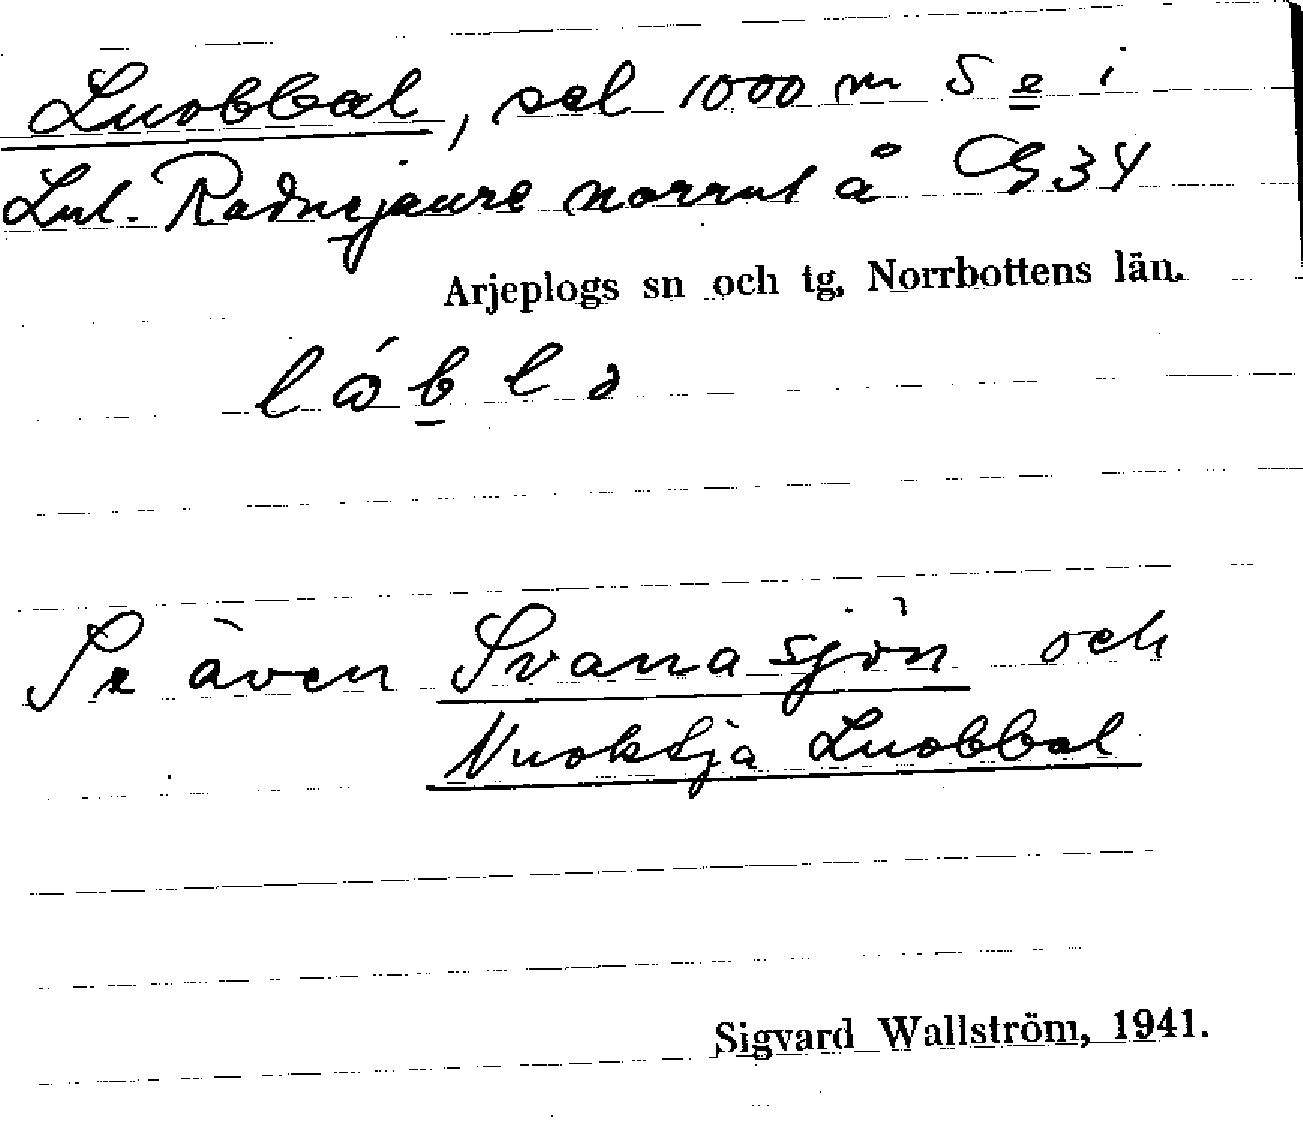 Luobbal, sel 1000 m S e i
Lul. Radnejaure norrut å G34
Arjeplogs sn och tg, Norrbottens län.
låbla
Se även Svanasjön och
Nuoktja Luobbal
Sigvard Wallström, 1941.